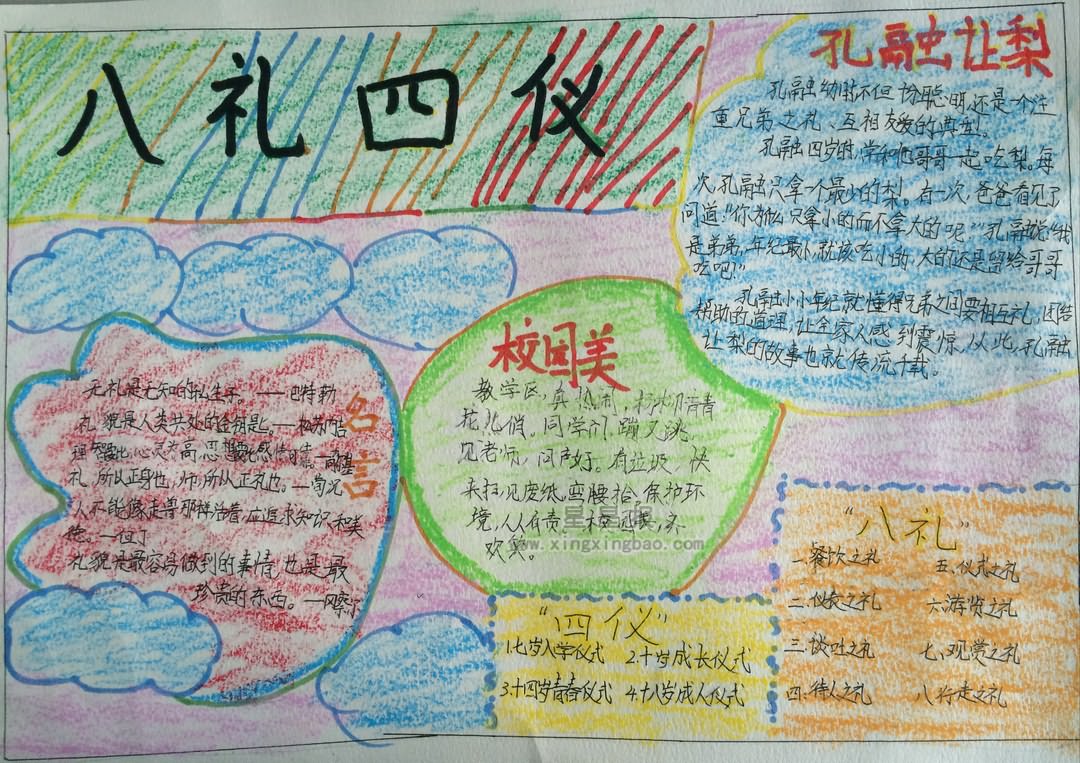 八礼四仪
孔融让梨
孔融幼时不但十分聪明,还是一个注
重兄弟之礼、互相友爱的典型。
孔融四岁时,常和他哥哥一起吃梨。每
次,孔融只拿一个最少的梨。有一次,爸爸看见了
问道:"你为什么只拿小的而不拿大的呢?"孔融说:"我
是弟弟,年纪最小,就该吃小的,大的还是留给哥哥
吃吧!"
孔融小小年纪就懂得兄弟之间要相互礼,团结
帮助的道理,让全家人感到震惊。从此,孔融
让梨的故事也就传流千载。
名言
无礼是无知的私生子。——巴特勒
礼貌是人类共处的金钥匙。——松苏内吉
礼,所以正身也,师,所以正礼也。——荀况
人不能像走兽那样活着,应追求知识和美
德。——但丁
礼貌是最容易做到的事情,也是最
珍贵的东西。——冈察尔
校园美
教学区,真热闹,杨柳青青
花儿俏。同学们,蹦又跳,
见老师,问声好。有垃圾,快
来扫,见废纸,弯腰拾,保护环
境,人人有责。校园美,
欢笑。
星星报
www.xingxingbao.com
"四仪"
1.七岁入学仪式 2.十岁成长仪式
3.十四岁青春仪式 4.十八岁成人仪式
"八礼"
一、餐饮之礼 五、仪式之礼
二、仪表之礼 六、游览之礼
三、谈吐之礼 七、观赏之礼
四、待人之礼 八、行走之礼